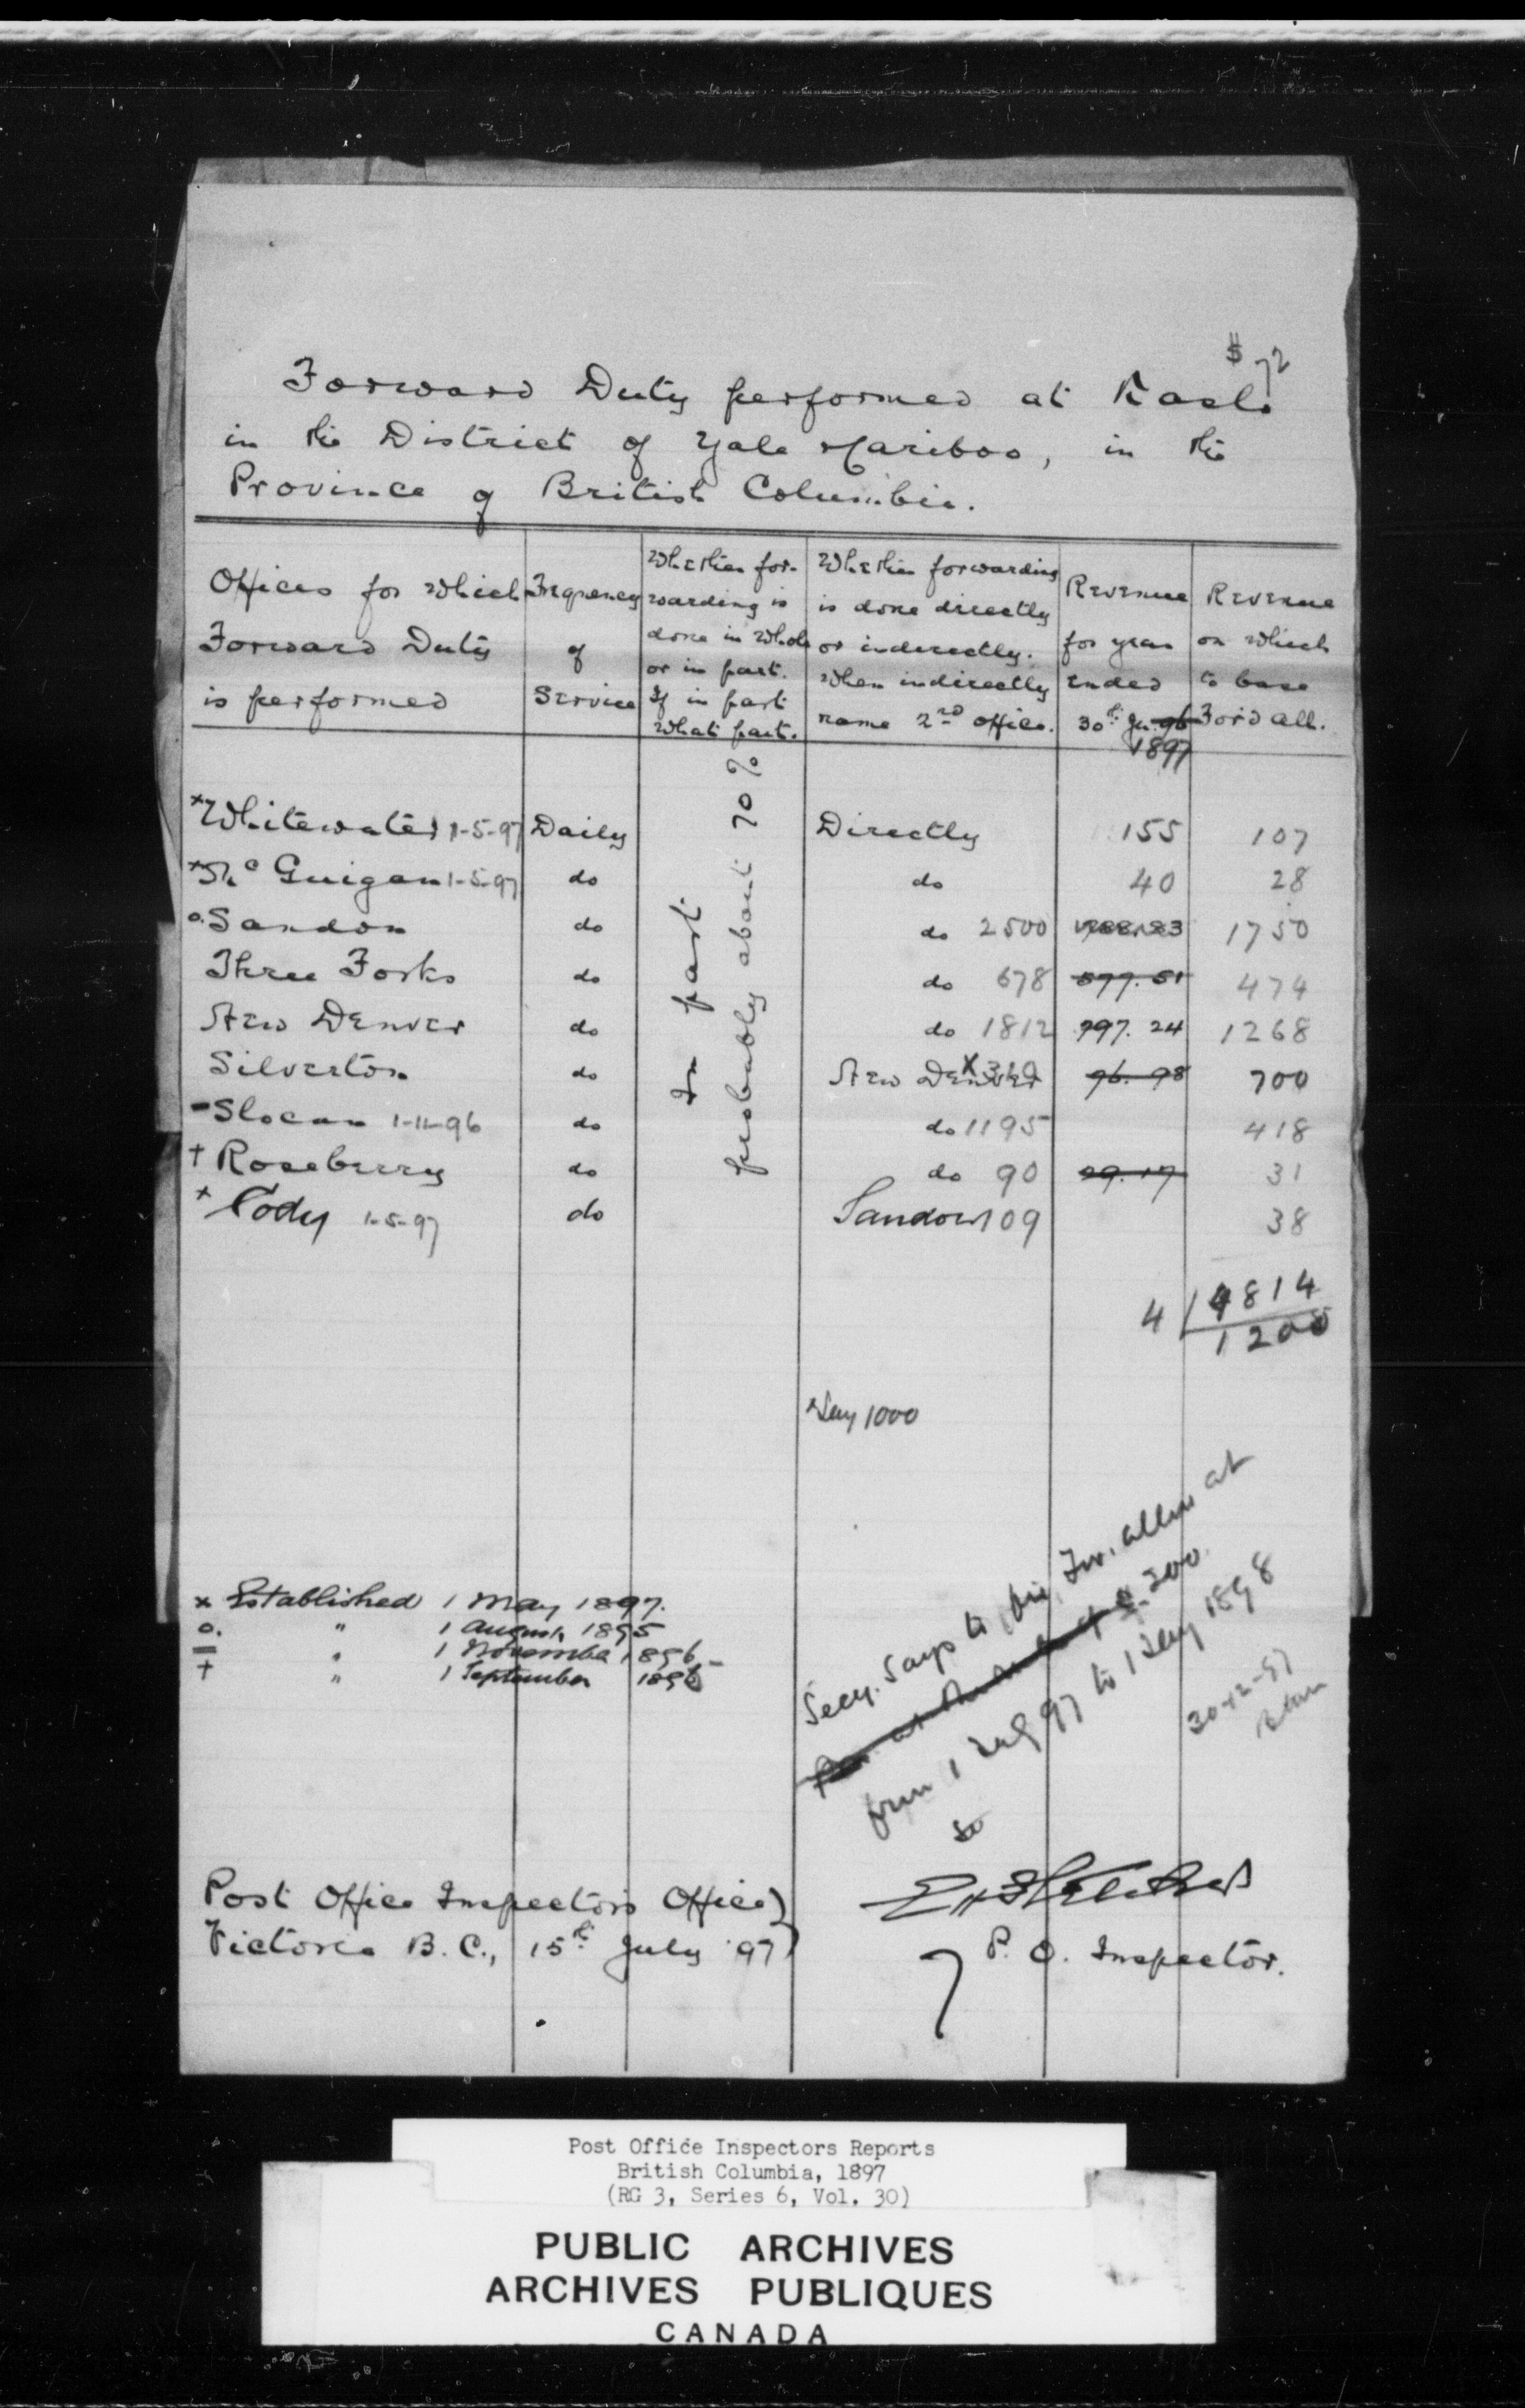 $72
Forward Duty performed at Kaslo
in the District of Yale & Cariboo, in the
Province of British Columbia.
Offices for which Forward Duty is performed
Frequency of Service
Whether forwarding is done in Whole or in part. If in part What part.
Whether forwarding is done directly or indirectly. When indirectly name 2nd office.
Revenue for year ended 30th Ju. 96 1897
Revenue on which to base For'd all.
In part probably about 70%
x Whitewater 1-5-97 Daily Directly 155 107
x McGuigan 1-5-97 do do 40 28
o. Sandon do do 2500 1750
Three Forks do do 678 577.51 474
New Denver do do 1812 797.24 1268
Silverton do New Denver 96.98 700
- Slocan 1-11-96 do do 1195 418
+ Roseberry do do 90 29.17 31
x Cody 1-5-97 do Sandon 109 38
4 | 4814
1200
Say 1000
x Established 1 May 1897.
o. " 1 August 1895
- " 1 November 1896 -
+ " 1 September 1896
Secy. Says to at
200
from 1 97 to 1 1898
30-12-97
Post Office Inspector's Office
Victoria B.C., 15th July '97
P. O. Inspector.
Post Office Inspectors Reports
British Columbia, 1897
(RG 3, Series 6, Vol. 30)
PUBLIC ARCHIVES
ARCHIVES PUBLIQUES
CANADA